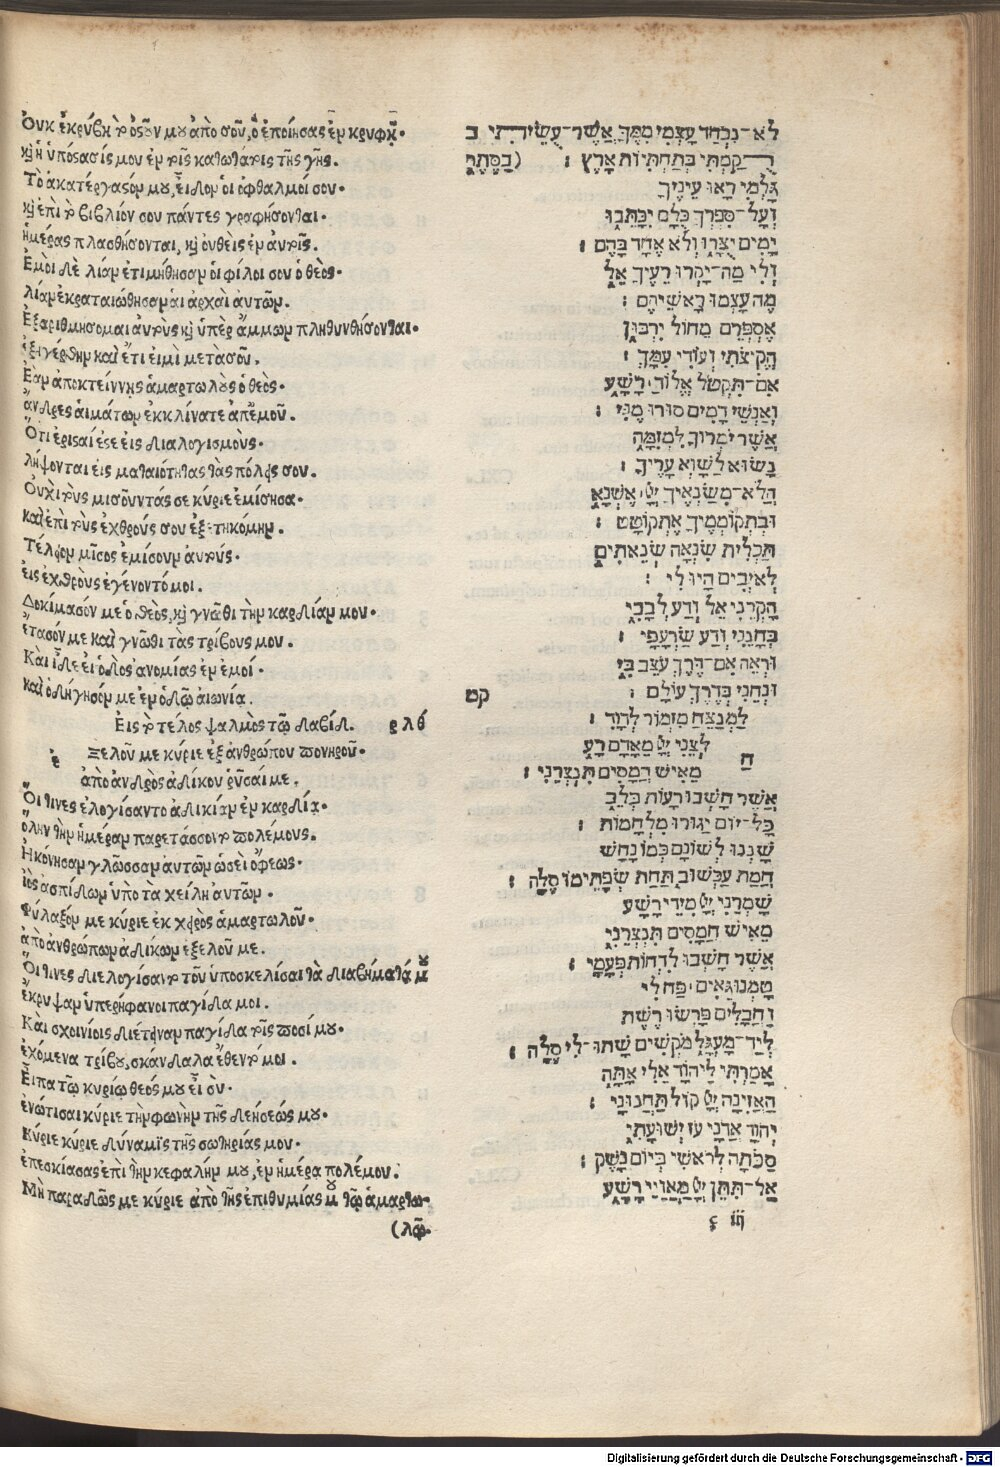 Ὀυκ ἐκρύβη τὸ ὀστοῦν μου ἀπὸ σοῦ, ὃ ἐποίησας ἐν κρυφῇ.
καὶ ἡ ὑπόστασίς μου ἐν τοῖς κατωτάτοις τῆς γῆς.
Τὸ ἀκατέργαστόν μου, εἶδον οἱ ὀφθαλμοί σου.
καὶ ἐπὶ τὸ βιβλίον σου πάντες γραφήσονται.
ἡμέρας πλασθήσονται, καὶ ὀυθεὶς ἐν ἀυτοῖς.
Ἐμοὶ δὲ λίαν ἐτιμήθησαν οἱ φίλοι σου ὁ θεὸς.
λίαν ἐκραταιώθησαν αἱ ἀρχαὶ ἀυτῶν.
Ἐξαριθμήσομαι ἀυτοὺς καὶ ὑπὲρ ἄμμων πληθυνθήσονται.
ἐξηγέρθην καὶ ἔτι εἰμὶ μετὰ σοῦ.
Ἐὰν ἀποκτείννῃς ἁμαρτωλοὺς ὁ θεὸς.
ἄνδρες ἁιμάτων ἐκκλίνατε ἀπ' ἐμοῦ.
Ὅτι ἐρισταί ἐστε εἰς διαλογισμοὺς.
λήψονται εἰς ματαιότητας τὰς πόλεις σου.
Ὀυχὶ τοὺς μισοῦντάς σε κύριε ἐμίσησα.
καὶ ἐπὶ τοὺς ἐχθρούς σου ἐξετηκόμην.
Τέλειον μῖσος ἐμίσουν ἀυτούς.
εἰς ἐχθροὺς ἐγένοντό μοι.
Δοκίμασόν με ὁ θεὸς, καὶ γνῶθι τὴν καρδίαν μου.
ἔτασόν με καὶ γνῶθι τὰς τρίβους μου.
Καὶ ἴδε εἰ ὁδὸς ἀνομίας ἐν ἐμοί.
καὶ ὁδήγησόν με ἐν ὁδῷ αἰωνία.
Ἐις τὸ τέλος ψαλμὸς τῷ δαβίδ. ρλθ
ἐ Ξελοῦ με κύριε ἐξ ἀνθρώπου πονηροῦ.
ἀπὸ ἀνδρὸς ἀδίκου ῥῦσαί με.
Ὅιτινες ἐλογίσαντο ἀδικίαν ἐν καρδίᾳ.
ὅλην τὴν ἡμέραν παρετάσσοντο πολέμους.
Ἠκόνησαν γλῶσσαν ἀυτῶν ὡσεὶ ὄφεως.
ἰὸς ἀσπίδων ὑπὸ τὰ χείλη ἀυτῶν.
Φύλαξόν με κύριε ἐκ χειρὸς ἁμαρτωλοῦ.
ἀπὸ ἀνθρώπων ἀδίκων ἐξελοῦ με.
Ὅιτινες διελογίσαντο τοῦ ὑποσκελίσαι τὰ διαβήματά μου
ἔκρυψαν ὑπερήφανοι παγίδα μοι.
Καὶ σχοινίοις διέτειναν παγίδα τοῖς ποσί μου.
ἐχόμενα τρίβου, σκάνδαλα ἔθεντό μοι.
Εἶπα τῷ κυρίῳ θεός μου εἶ σὺ.
ἐνώτισαι κύριε τὴν φωνὴν τῆς δεήσεώς μου.
Κύριε κύριε δύναμις τῆς σωτηρίας μου.
ἐπεσκίασας ἐπὶ τὴν κεφαλήν μου, ἐν ἡμέρᾳ πολέμου.
Μὴ παραδῷς με κύριε ἀπὸ τῆς ἐπιθυμίας μου τῷ ἁμαρτω-
(λῷ.
לֹא־נִכְחַד עָצְמִי מִמֶּךָּ אֲשֶׁר־עֻשֵּׂיתִי ב
רֻקַּמְתִּי בְּתַחְתִּיּוֹת אָרֶץ : (בַסֵּתֶר
גָּלְמִי רָאוּ עֵינֶיךָ
וְעַל־סִפְרְךָ כֻּלָּם יִכָּתֵבוּ
יָמִים יֻצָּרוּ וְלֹא אֶחָד בָּהֶם :
וְלִי מַה־יָּקְרוּ רֵעֶיךָ אֵל
מֶה עָצְמוּ רָאשֵׁיהֶם :
אֶסְפְּרֵם מֵחוֹל יִרְבּוּן
הֱקִיצֹתִי וְעוֹדִי עִמָּךְ :
אִם־תִּקְטֹל אֱלוֹהַּ רָשָׁע
וְאַנְשֵׁי דָמִים סוּרוּ מֶנִּי :
אֲשֶׁר יֹמְרוּךָ לִמְזִמָּה
נָשׂוּא לַשָּׁוְא עָרֶיךָ :
הֲלֹא־מְשַׂנְאֶיךָ יְיָ אֶשְׂנָא
וּבִתְקוֹמְמֶיךָ אֶתְקוֹטָט :
תַּכְלִית שִׂנְאָה שְׂנֵאתִים
לְאֹיְבִים הָיוּ לִי :
חָקְרֵנִי אֵל וְדַע לְבָבִי
בְּחָנֵנִי וְדַע שַׂרְעַפָּי :
וּרְאֵה אִם־דֶּרֶךְ עֹצֶב בִּי
וּנְחֵנִי בְּדֶרֶךְ עוֹלָם : קמ
לַמְנַצֵּחַ מִזְמוֹר לְדָוִד :
ח לְּצֵנִי יְיָ מֵאָדָם רָע
מֵאִישׁ חֲמָסִים תִּנְצְרֵנִי :
אֲשֶׁר חָשְׁבוּ רָעוֹת בְּלֵב
כָּל־יוֹם יָגוּרוּ מִלְחָמוֹת :
שָׁנְנוּ לְשׁוֹנָם כְּמוֹ נָחָשׁ
חֲמַת עַכְשׁוּב תַּחַת שְׂפָתֵימוֹ סֶלָה :
שָׁמְרֵנִי יְיָ מִידֵי רָשָׁע
מֵאִישׁ חֲמָסִים תִּנְצְרֵנִי
אֲשֶׁר חָשְׁבוּ לִדְחוֹת פְּעָמָי :
טָמְנוּ גֵאִים פַּח לִי
וַחֲבָלִים פָּרְשׂוּ רֶשֶׁת
לְיַד־מַעְגָּל מֹקְשִׁים שָׁתוּ־לִי סֶלָה :
אָמַרְתִּי לַיהוָֹד אֵלִי אָתָּה
הַאֲזִינָה יְיָ קוֹל תַּחֲנוּנָי :
יְהוָֹד אֲדֹנָי עֹז יְשׁוּעָתִי
סַכֹּתָה לְרֹאשִׁי בְּיוֹם נָשֶׁק :
אַל־תִּתֵּן יְיָ מַאֲוַיֵּי רָשָׁע
ς iij
Digitalisierung gefördert durch die Deutsche Forschungsgemeinschaft - DFG